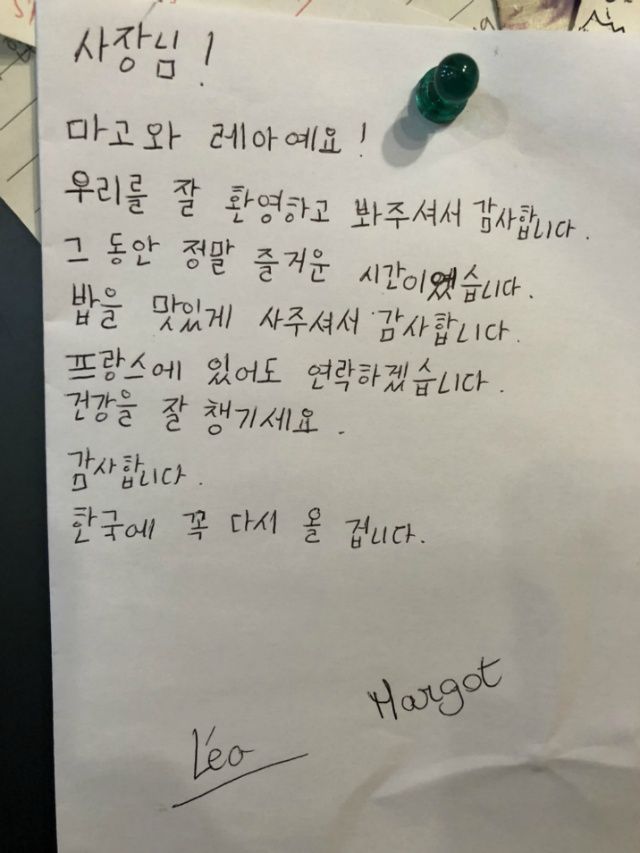 사장님!
마고와 레아예요!
우리를 잘 환영하고 봐주셔서 감사합니다.
그 동안 정말 즐거운 시간이옜습니다.
밥을 맛있게 사주셔서 감사합니다.
프랑스에 있어도 연락하겠습니다.
건강을 잘 챙기세요.
감사합니다.
한국에 꼭 다시 올 겁니다.
Margot
Léa